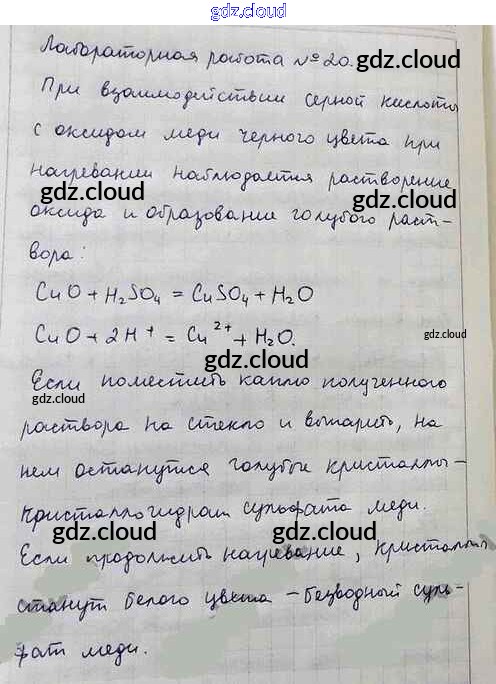 gdz.cloud
Лабораторная работа №20. gdz.cloud
При взаимодействии серной кислоты
с оксидом меди черного цвета при
нагревании наблюдается растворение
gdz.cloud gdz.cloud
оксида и образование голубого раст-
вора:
CuO + H₂SO₄ = CuSO₄ + H₂O
CuO + 2H⁺ = Cu²⁺ + H₂O.
gdz.cloud
Если поместить каплю полученного
gdz.cloud
раствора на стекло и выпарить, на
нем останутся голубые кристаллы -
кристаллогидрат сульфата меди.
gdz.cloud gdz.cloud
Если продолжить нагревание, кристаллы
станут белого цвета - безводный суль-
фат меди.